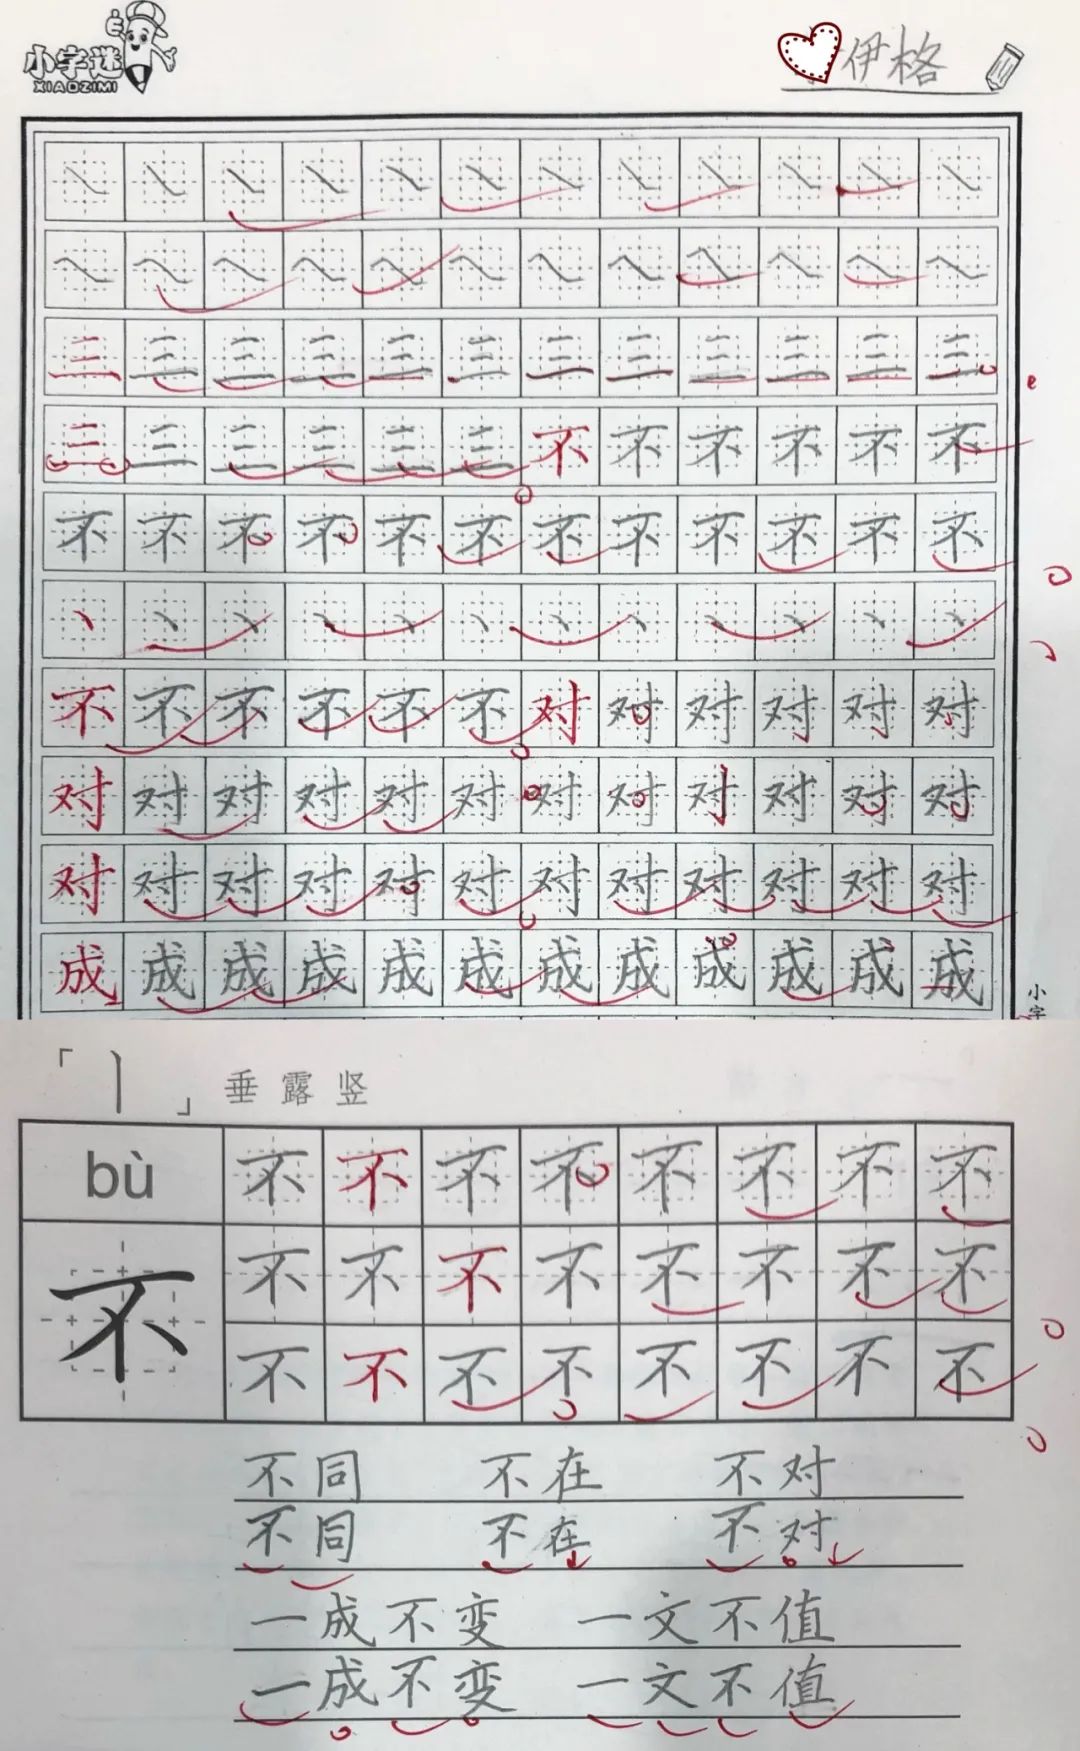 小字迷
XIAOZIMI
伊格
三 三 三 三 三 三 三 三 三 三 三 三
三 三 三 三 三 三 不 不 不 不 不 不
不 不 不 不 不 不 不 不 不 不 不 不
不 不 不 不 不 不 对 对 对 对 对 对
对 对 对 对 对 对 对 对 对 对 对 对
对 对 对 对 对 对 对 对 对 对 对 对
成 成 成 成 成 成 成 成 成 成 成 成
小字
「丨」垂露竖
bù 不 不 不 不 不 不 不 不
不 不 不 不 不 不 不 不 不
不 不 不 不 不 不 不 不
不同 不在 不对
不同 不在 不对
一成不变 一文不值
一成不变 一文不值